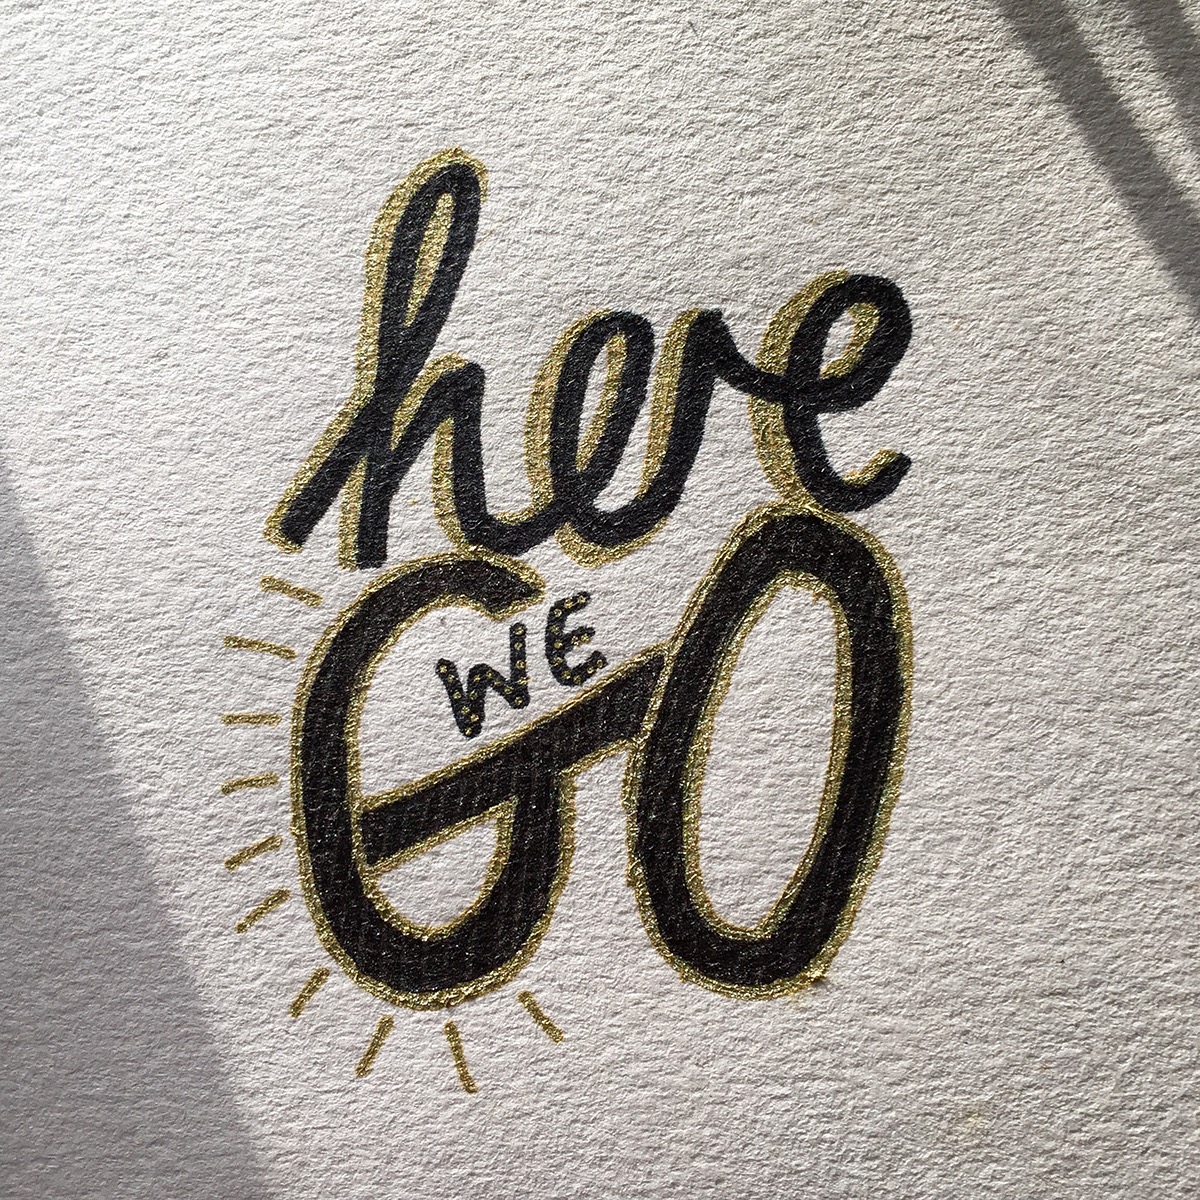 here
WE
GO